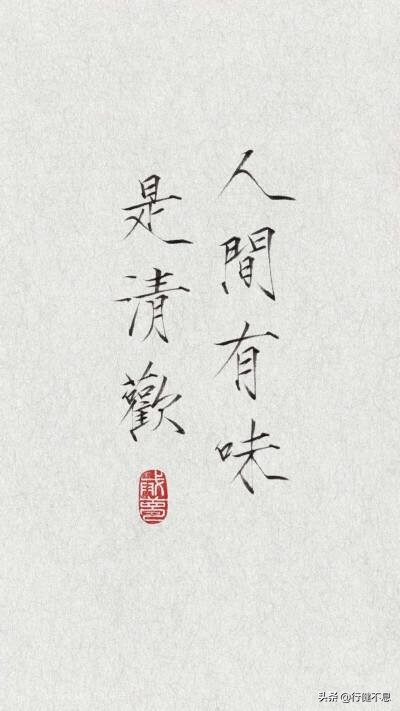 人間有味
是清歡
头条 @行健不息